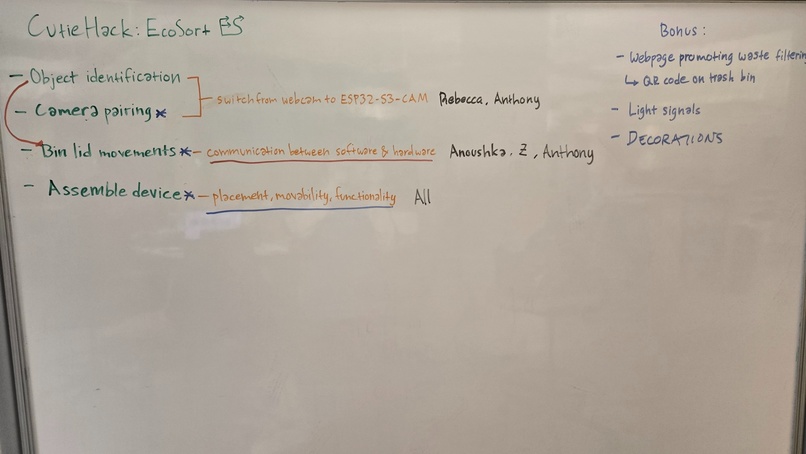 CutieHack: EcoSort ES
- Object identification
- Camera pairing*
switch from webcam to ESP32-S3-CAM Rebecca, Anthony
- Bin lid movements* - communication between software & hardware Anoushka, Z, Anthony
- Assemble device* - placement, movability, functionality All
Bonus:
- Webpage promoting waste filtering
↳ QR code on trash bin
- Light signals
- DECORATIONS